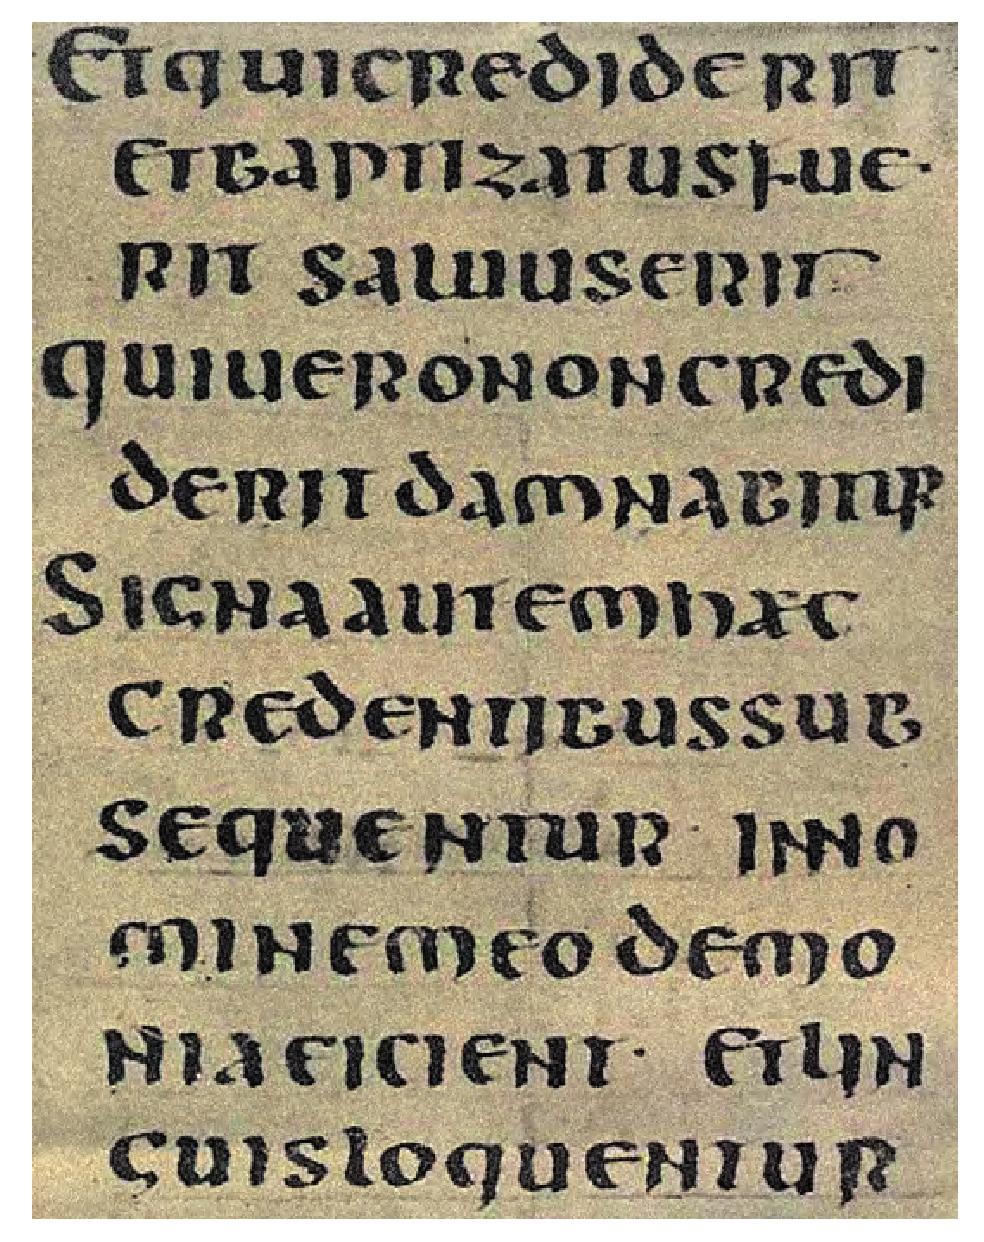 Et qui crediderit
et baptizatus fue·
rit saluus erit
qui uero non credi
derit damnabitur
Signa autem hæc
credentibus sub
sequentur · In no
mine meo demo
nia eicient · et lin
guis loquentur